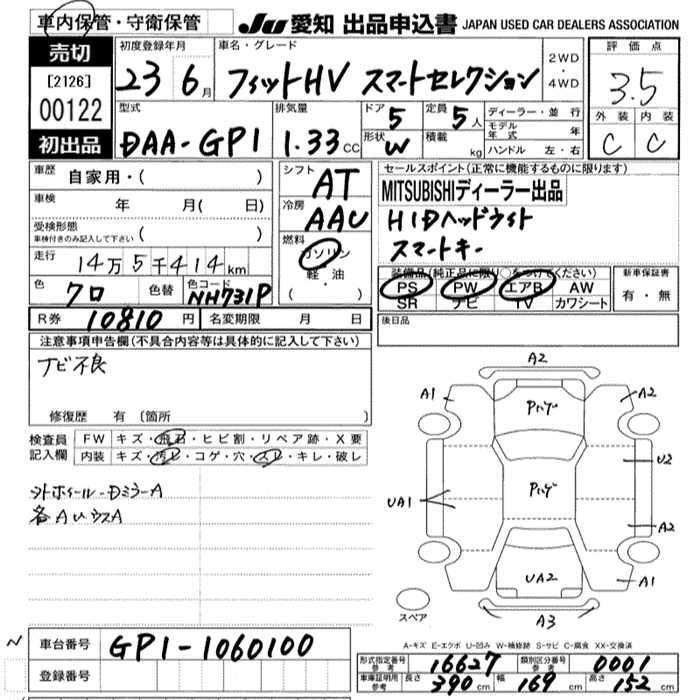 車内保管・守衛保管 JU 愛知 出品申込書 JAPAN USED CAR DEALERS ASSOCIATION
売切
[2126]
00122
初出品
初度登録年月
23 6月
車名・グレード
フィットHV スマートセレクション
2WD
・
4WD
評価点
3.5
外装 内装
C C
型式
DAA-GP1
排気量
1.33 CC
ドア 5
定員 5人
形状 W
積載 kg
ディーラー・並行
モデル年式 年
ハンドル 左・右
車歴
自家用・( )
車検 年 月( 日)
受検形態
車検付きのみ記入して下さい ( )
走行 14万5千414km
色 クロ 色替 色コード NH731P
シフト AT
冷房 AAC
燃料
ガソリン
軽・油
( ・ )
セールスポイント(正常に機能するものに限ります)
MITSUBISHIディーラー出品
HIDヘッドライト
スマートキー
装備品(純正品に限り○をつけてください)
PS PW エアB AW
SR ナビ TV カワシート
新車保証書
有・無
R券 10810円 名変期限 月 日
後日品
注意事項申告欄(不具合内容等は具体的に記入して下さい)
ナビ不良
修復歴 有 (箇所 )
検査員記入欄
FW キズ・飛石・ヒビ割・リペア跡・X要
内装 キズ・汚レ・コゲ・穴・スレ・キレ・破レ
外ホイール・DミラーA
各AUウスA
A2
A1 A2
Pハゲ
U2
UA1
Pハゲ
A2
UA2
A1
スペア
A3
A-キズ E-エクボ U-凹み W-補修跡 S-サビ C-腐食 XX-交換済
車台番号 GP1-1060100
登録番号
形式指定番号 参考 16627 類別区分番号 参考 0001
車庫証明用 参考 長さ 390cm 幅 169cm 高さ 152cm